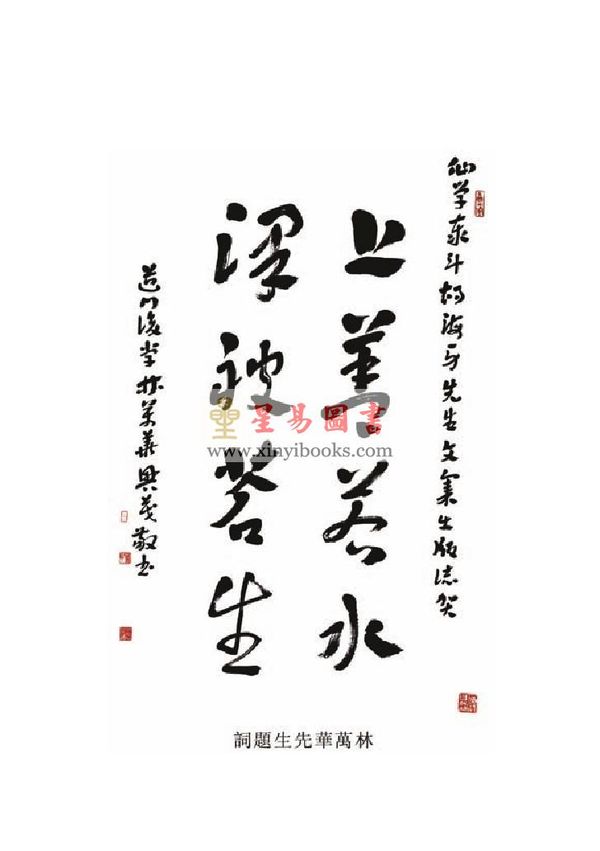 仙学泰斗胡海牙先生文集出版志贺
上善若水
泽被苍生
道门後学林萬華興茂敬书
星易圖書
www.xinyibooks.com
林萬華先生題詞